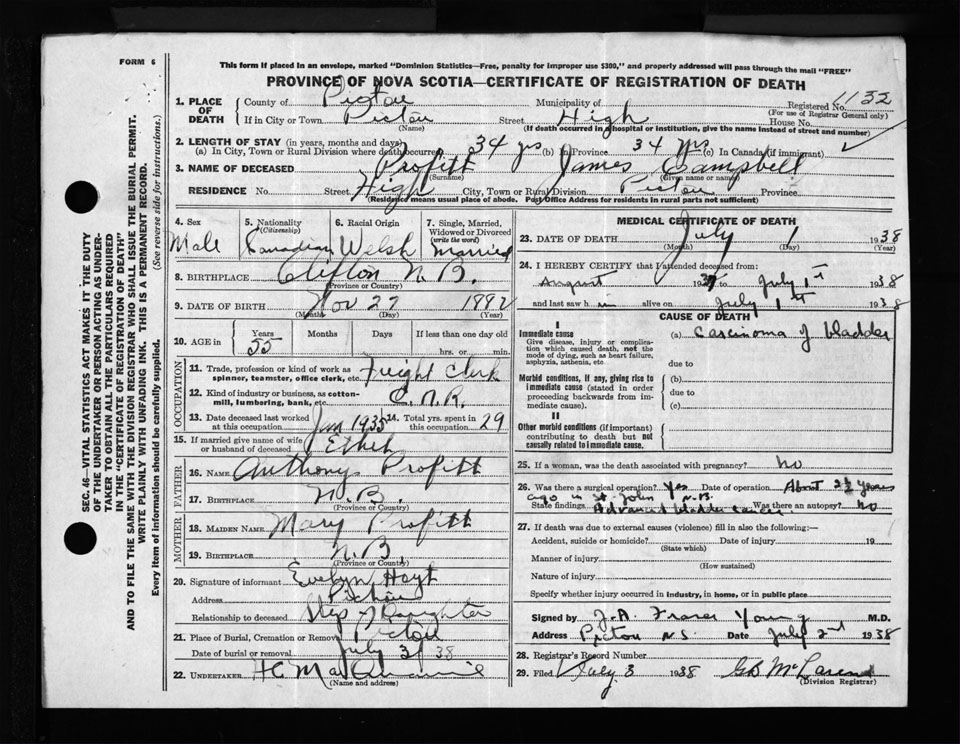 FORM 6
This form if placed in an envelope, marked "Dominion Statistics—Free, penalty for improper use $300," and properly addressed will pass through the mail "FREE"
PROVINCE OF NOVA SCOTIA—CERTIFICATE OF REGISTRATION OF DEATH
1. PLACE OF DEATH { County of Pictou Municipality of Registered No. 1132
(For use of Registrar General only)
If in City or Town Pictou Street High House No.
(Name) (If death occurred in a hospital or institution, give the name instead of street and number)
2. LENGTH OF STAY (in years, months and days)
(a) In City, Town or Rural Division where death occurred 34 yrs (b) In Province 34 yrs (c) In Canada (if immigrant)
3. NAME OF DECEASED Profitt James Campbell
(Surname) (Given name or names)
RESIDENCE No. Street High City, Town or Rural Division Pictou Province
(Residence means usual place of abode. Post Office Address for residents in rural parts not sufficient)
4. Sex Male
5. Nationality (Citizenship) Canadian
6. Racial Origin Welsh
7. Single, Married, Widowed or Divorced (write the word) Married
8. BIRTHPLACE Clifton N.B.
(Province or Country)
9. DATE OF BIRTH Nov 27 1882
(Month) (Day) (Year)
10. AGE in { Years 55 Months Days If less than one day old
hrs. or min.
OCCUPATION
11. Trade, profession or kind of work as spinner, teamster, office clerk, etc. Freight Clerk
12. Kind of industry or business, as cotton-mill, lumbering, bank, etc. C.N.R.
13. Date deceased last worked at this occupation Jan 1935 14. Total yrs. spent in this occupation 29
15. If married give name of wife or husband of deceased Ethel
FATHER
16. NAME Anthony Profitt
17. BIRTHPLACE N.B.
(Province or Country)
MOTHER
18. MAIDEN NAME Mary Profitt
19. BIRTHPLACE N.B.
(Province or Country)
20. Signature of informant Evelyn Hoyt
Address Pictou
Relationship to deceased Step Daughter
21. Place of Burial, Cremation or Removal Pictou
Date of burial or removal July 3 38
22. UNDERTAKER
(Name and address)
MEDICAL CERTIFICATE OF DEATH
23. DATE OF DEATH July 1 1938
(Month) (Day) (Year)
24. I HEREBY CERTIFY that I attended deceased from:
August 1937 to July 1st 1938
and last saw him alive on July 1st 1938
CAUSE OF DEATH
I
Immediate cause (a) Carcinoma of bladder
Give disease, injury or complication which caused death, not the mode of dying, such as heart failure, asphyxia, asthenia, etc
due to
Morbid conditions, if any, giving rise to immediate cause (stated in order proceeding backwards from immediate cause).
(b)
due to
(c)
II
Other morbid conditions (if important) contributing to death but not causally related to immediate cause.
25. If a woman, was the death associated with pregnancy? No
26. Was there a surgical operation? Yes Date of operation About 2½ years
ago in St. John N.B.
State findings Advanced bladder cancer Was there an autopsy? No
27. If death was due to external causes (violence) fill in also the following:—
Accident, suicide or homicide? Date of injury 19
(State which)
Manner of injury
(How sustained)
Nature of injury
Specify whether injury occurred in industry, in home, or in public place
Signed by J.A. Fraser Young M.D.
Address Pictou N.S. Date July 2nd 1938
28. Registrar's Record Number
29. Filed July 3 1938 McLaren
(Division Registrar)
SEC. 46—VITAL STATISTICS ACT MAKES IT THE DUTY
OF THE UNDERTAKER OR PERSON ACTING AS UNDER-
TAKER TO OBTAIN ALL THE PARTICULARS REQUIRED
IN THE "CERTIFICATE OF REGISTRATION OF DEATH"
AND TO FILE THE SAME WITH THE DIVISION REGISTRAR WHO SHALL ISSUE THE BURIAL PERMIT.
WRITE PLAINLY WITH UNFADING INK. THIS IS A PERMANENT RECORD.
Every item of information should be carefully supplied. (See reverse side for instructions.)